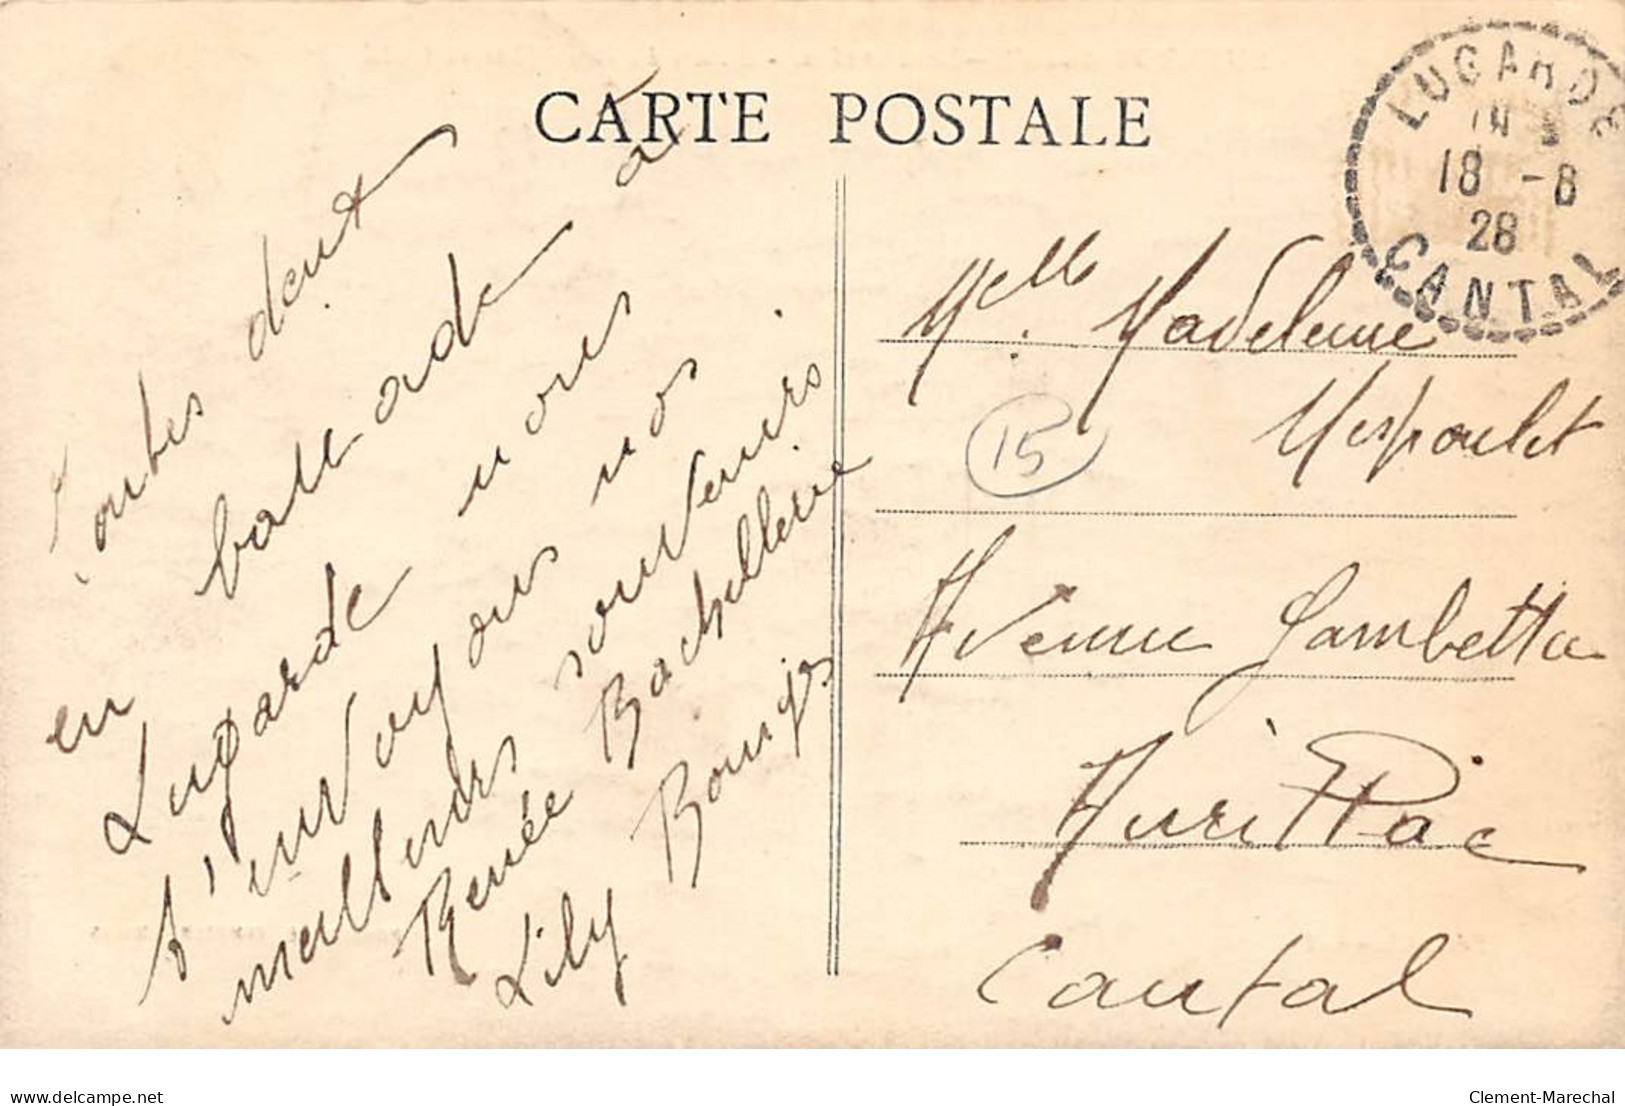 CARTE POSTALE
LUGARDE
18 -8
28
CANTAL
Toutes deux
en ballade à
Lugarde nous
t'envoyons nos
meilleurs souvenirs
Renée Bachellerie
Lily Bouiges
Melle Madeleine
Mespoulet
15
Avenue Gambetta
Aurillac
Cantal
delcampe.net
Clement-Marechal